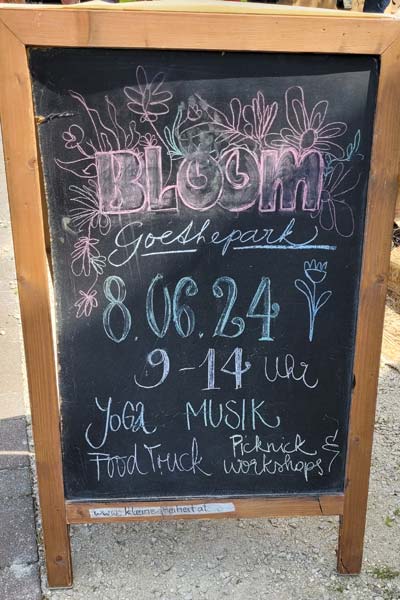 BLOOM
Goethepark
8.06.24
9-14 Uhr
Yoga MUSIK
Food Truck Picknick &
workshops
www.kleinefreiheit.at